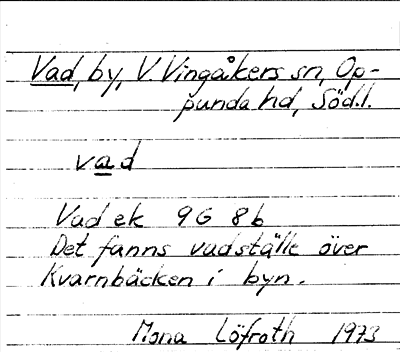 Vad, by, V. Vingåkers sn, Op-
punda hd, Söd.l.
vad
Vad ek 9G 8b
Det fanns vadställe över
Kvarnbäcken i byn.
Mona Löfroth 1973